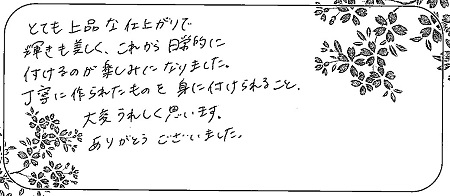 とても上品な仕上がりで
輝きも美しく、これから日常的に
付けるのが楽しみになりました。
丁寧に作られたものを身に付けられること、
大変うれしく思います。
ありがとうございました。